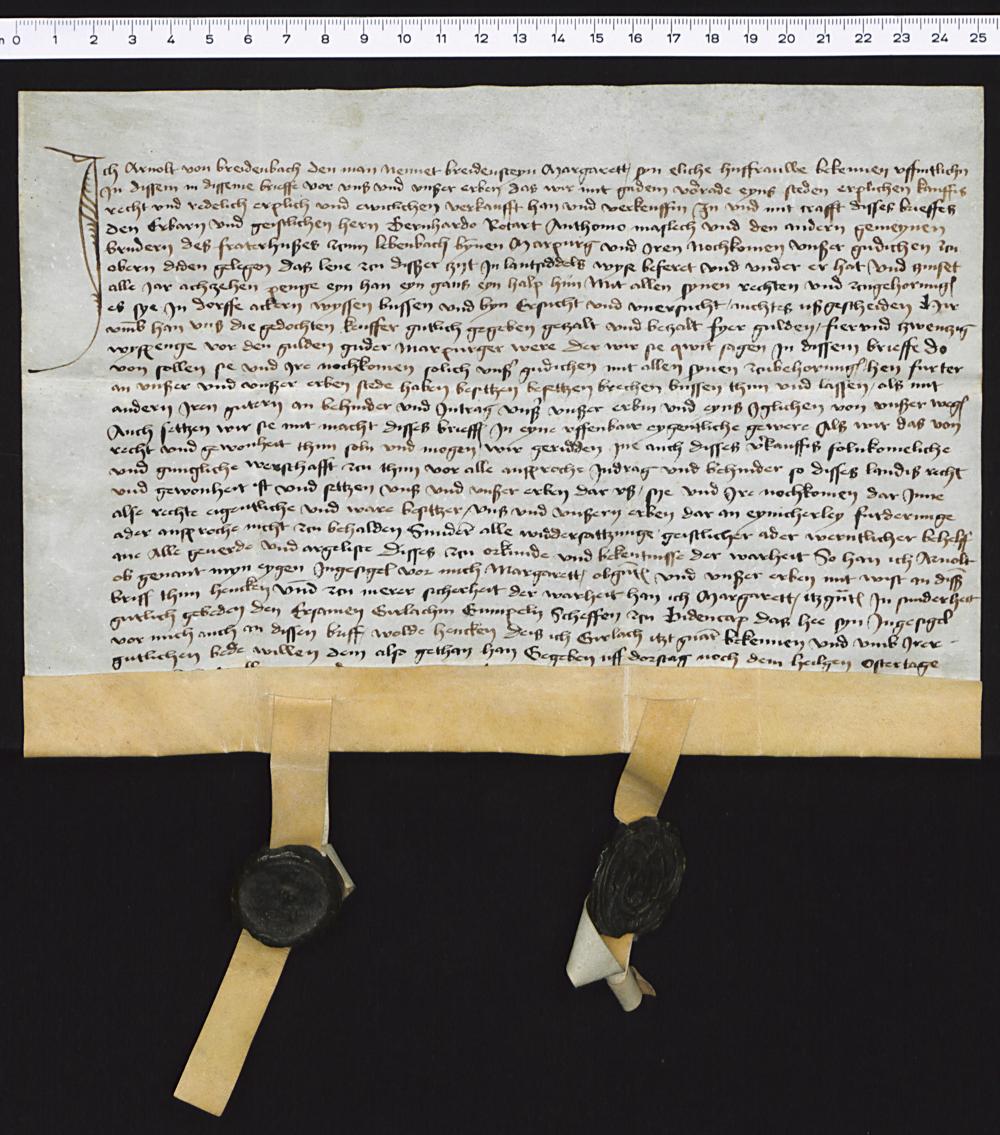 0 1 2 3 4 5 6 7 8 9 10 11 12 13 14 15 16 17 18 19 20 21 22 23 24 25
Ich Arnolt von breidenbach den man nennet breidensteyn Margarett syn eliche husfrauwe bekennen uffintlichn
In dissem in disseme brieffe vor unß und unßer erben das wir mit gudem vdrade eyns steden erplichen kauffis
recht und redelich erplich und ewiclichen verkaufft han und verkeuffin In und mit crafft disses brieffes
den Erbarn und geistlichen hern Bernhardo Rotart Anthonio maslech und den andern gemeynen
brudern deß fraterhußes zcum lebenbach bynnen Marpurg und Iren nochkomen unßer gudichen zcu
obern diden gelegen das lene zcu disßer zyt In lantsiddels wyse beseret und under er hat und zinset
alle Jar achzehen penge eyn han eyn gans eyn halp hun Mit allen synen rechten und zcugehorung
es sye In dorffe ackern wyssen bussen und byn Ersucht und unersucht nichtes ußgescheiden Hir
umb han uns die gedochten keuffer gutlich gegeben gezalt und bezalt fyer gulden fier und zwenzig
wyßpenge vor den gulden guder marpurger were Der wir sie qwit sagen In dissem brieffe do
von sollen sie und Ire nochkomen solich unß gudichen mit allen synen zcubehorung hen furter
an unßer und unßer erben stede haben besitzen besetzen brechen bussen thun und lassen als mit
andern Iren gutern an behinder und Intrag unß unßer erbin und eyns Iglichen von unßer weg
Auch setzen wir sie mit macht disses brieffs In eyne uffenbare eygentliche gewere Als wir das von
recht und gewonheit thun soln und mogen wir geridden Ine auch disses vkauffis solnkomeliche
und gnugliche werschafft zcu thun vor alle ansproche Indrag und behinder so disses landis recht
und gewonheit ist und setzen unß und unßer erben dar uß sye und Ire nochkomen dar Inne
alse rechte eigentliche und ware besitzer unß und unßern erben dar an eynicherley furderunge
ader ansproche nicht zcu behalden Sunder alle widdersatzunge geistlicher ader werntlicher behelff
ane Alle geuerde und argeliste Disses zcu orkunde und bekentnisse der warheit So han ich Arnolt
ob genant myn eygen Ingesigel vor mich Margarett obgnt und unßer erben mit wist an diss
briff thun hencken und zcu merer sicherheit der warheit han ich Margarett itzgnt In sunderheit
gutlich gebeden den Ersamen Gerlachin Gumpeln Scheffen zcu Bidencap das hee syn Ingesigel
vor mich auch an dissen briff wolde hencken Deß ich Gerlach itzt gnat bekennen und umb Irer
gutlichen bede willen dem also gethan han Gegeben uff dorstag noch dem heilgen Ostertage